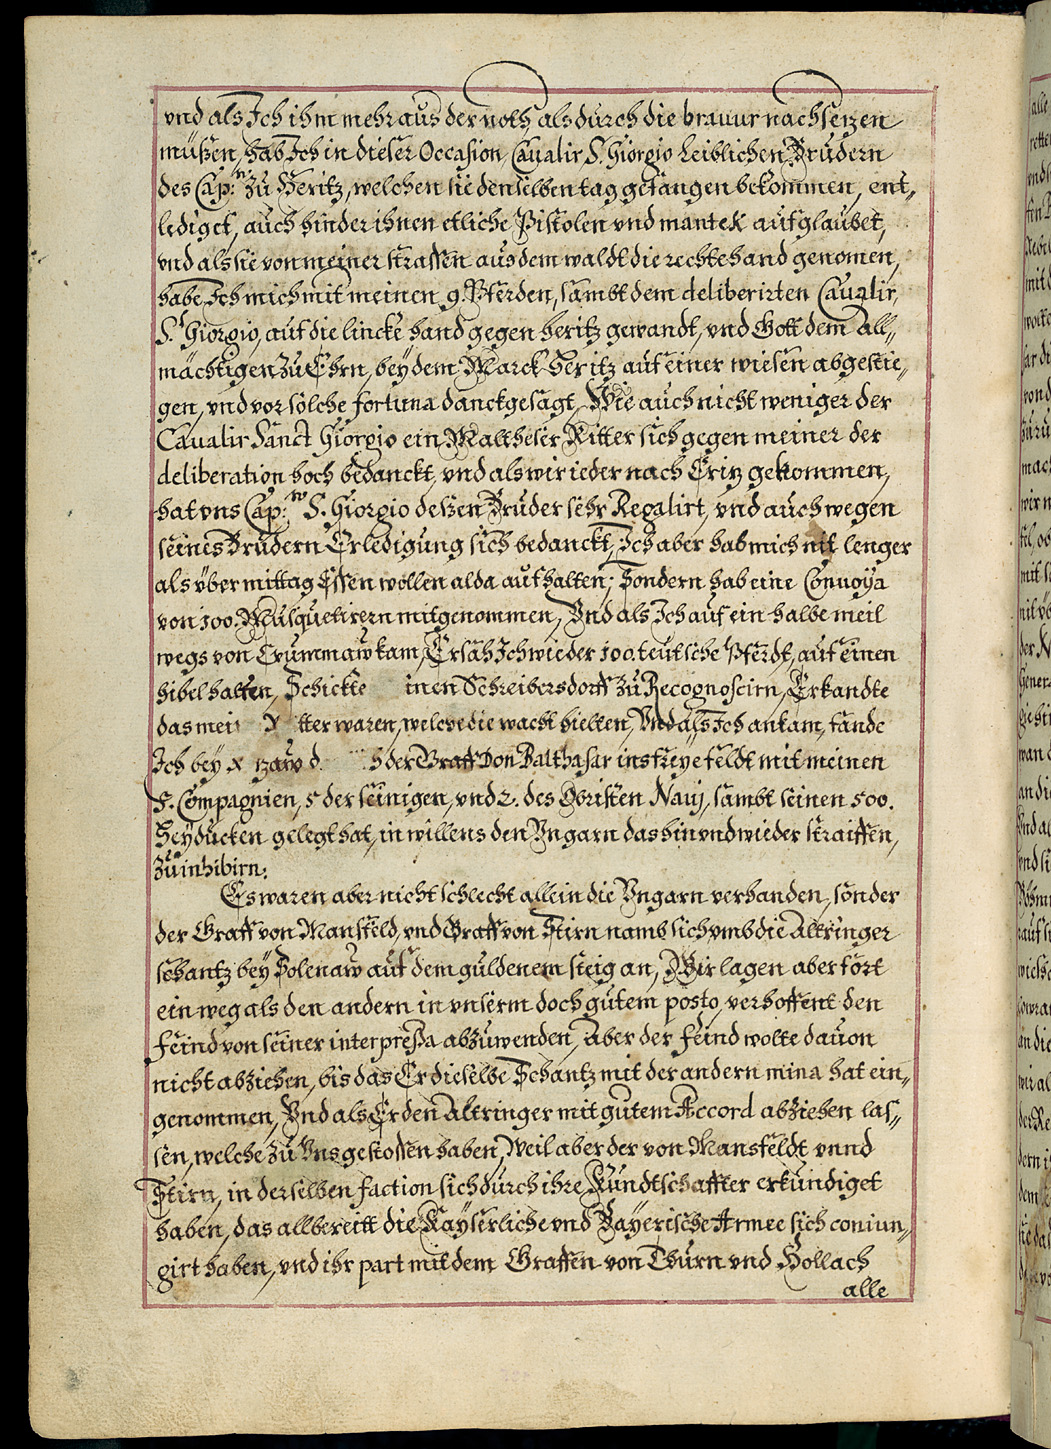 vnd als Ich ihm mehr aus der noth als durch die brauur nachsezen
müßen, hab Ich in dieser Occasion Caualir S. Giorgio Leiblichen Brudern
des Cap:n zu Heritz, welchen sie denselben tag gefangen bekommen, ent„
lediget, auch hinder ihnen etliche Pistolen vnd mantel aufglaubet,
vnd als sie von meiner strassen aus dem waldt die rechte hand genomen,
habe Ich mich mit meinen 9. Pferden, sambt dem deliberirten Caualir,
St. Giorgio, auf die lincke hand gegen heritz gewandt, vnd Gott dem All„
mächtigen zu Ehrn, bey dem Marck Heritz auf einer wiesen abgestie„
gen, vnd vor solche fortuna danckgesagt, Wie auch nicht weniger der
Caualir Sanct Giorgio ein Maltheser Ritter sich gegen meiner der
deliberation hoch bedanckt, vnd als wir ieder nach Eritz gekommen,
hat vns Cap:n S. Giorgio deßen Bruder sehr Regalirt, vnd auch wegen
seines Brudern Erledigung sich bedanckt, Ich aber hab mich nit lenger
als über mittag Essen wollen alda aufhalten; Sondern hab eine Conuoya
von 100. Musquetirern mitgenommen, Vnd als Ich auf ein halbe meil
wegs von Crummaw kam, Ersah Ich wieder 100. teutsche Pferdt, auf einen
hibel halten, Schickte inen Schreibersdorff zu Recognoscirn, Erkandte
das mei tter waren, welche die wacht hielten, Vnd als Ich ankam, fande
Ich bey der Graff Don Balthasar ins freye feldt mit meinen
5. Compagnien, 5 der seinigen, vnd 2. des Obristen Nauj, sambt seinen 500.
Heyducken gelegt hat, in willens den Vngarn das hin vnd wieder straiffen,
zu inhibirn.
Es waren aber nicht schlecht allein die Vngarn verhanden, sonder
der Graff von Mansfeld, vnd Graff von Stirn namb sich vmb die Altringer
schantz bey Solenaw auf dem guldenem steig an, Wir lagen aber fort
ein weg als den andern in vnserm doch gutem posto, verhoffent den
feind von seiner interpressa abzuwenden, Aber der feind wolte dauon
nicht abziehen, bis das Er dieselbe Schantz mit der andern mina hat ein„
genommen, Vnd als Er den Altringer mit gutem Accord abziehen las„
sen, welche zu Vns gestossen haben, Weil aber der von Mansfeldt vnnd
Stirn, in derselben faction sich durch ihre Kundtschaffter erkundiget
haben, das allbereitt die Kayserliche vnd Bayerische Armee sich coniun„
girt haben, vnd ihr part mit dem Graffen von Thurn vnd Hollach
alle